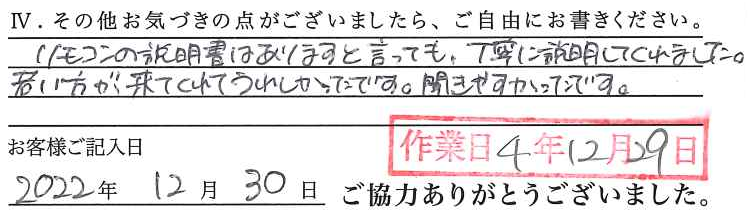 Ⅳ．その他お気づきの点がございましたら、ご自由にお書きください。
リモコンの説明書はありますと言っても、丁寧に説明してくれました。
若い方が、来てくれてうれしかったです。聞きやすかったです。
お客様ご記入日
作業日4年12月29日
2022年 12月 30日 ご協力ありがとうございました。